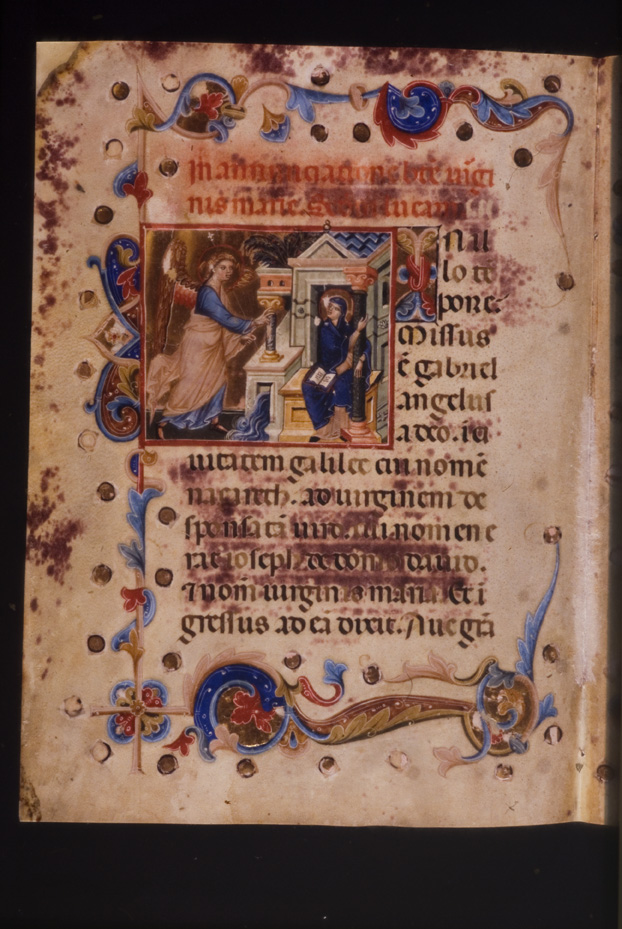 In annunciationis bte uirgi
nis marie. Secundum lucam
IN il
lo te
pore.
Missus
ē gabriel
angelus
a deo. i ci
uitatem galilee cui nomē
nazareth. ad uirginem de
sponsatā uiro. cui nomen e
rat ioseph de domo dauid.
⁊ nom̄ uirginis maria. Et ī
gressus ad eā dixit. Aue grā